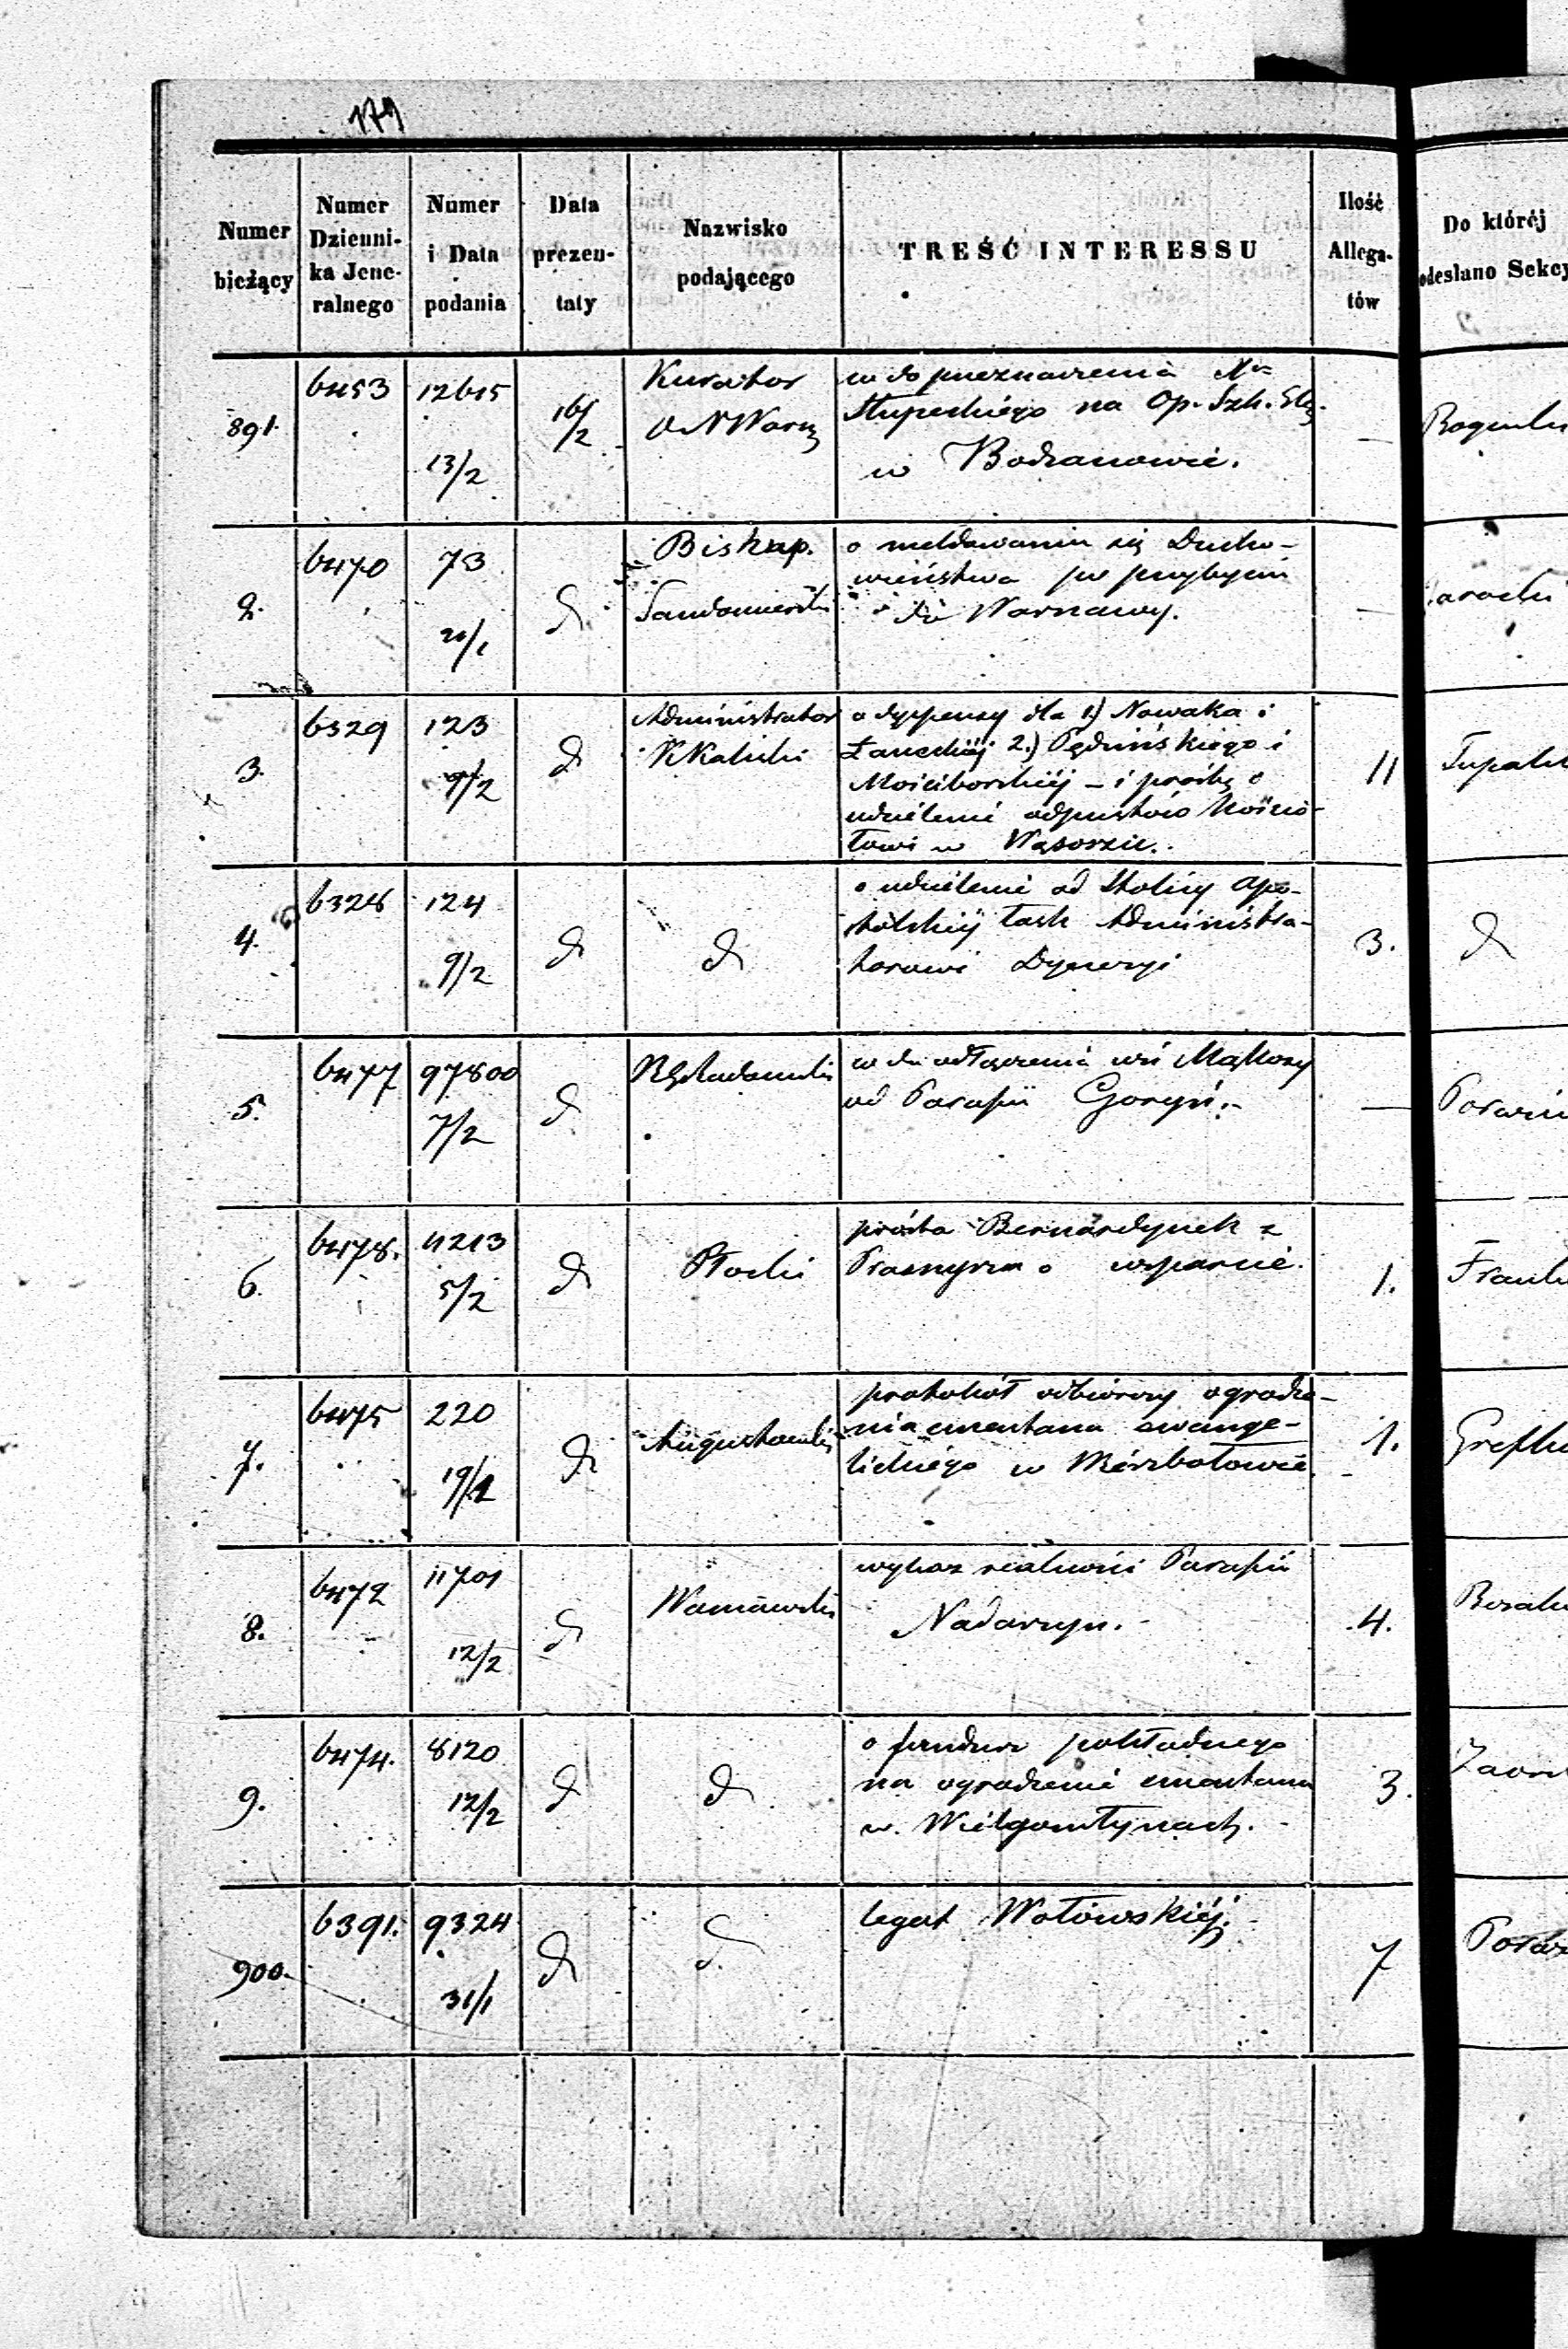 179
Numer bieżący
Numer Dzienni-ka Jene-ralnego
Numer i Data podania
Data prezen-taty
Nazwisko podającego
TREŚĆ INTERESSU
Ilość Allega-tów
Do któréj odesłano Sekcy
891. 6453 12615 13/2 16/2 Kurator
w do przeznaczenia
Słupeckiego na Op. Szk. El.
w Bodzanowie. —
2. 6470 73 21/1 d Biskup. Sandomierski
o meldowaniu się Ducho-
wieństwa po przybyciu
do Warszawy. —
3. 6329 123 9/2 d Administrator K Kaliski
o dyspensy dla 1.) Nowaka i
Łaneckiéj 2.) Pędzińskiego i
Mościborskiéj – i prośbę o
udzielenie odpustów Kościo-
łowi w Wąsoszu. 11
4. 6328 124 9/2 d d
o udzielenie od Stolicy Apo-
stolskiéj łask Administra-
torowi Dyecezyi 3. d
5. 6477 97800 7/2 d RG Radomski
w do odłączenia wsi Mąkosy
od Parafii Goryń. —
6. 6478. 4213 5/2 d Płocki
prośba Bernardynek z
Prasnysza o wsparcie. 1.
7. 6475 220 19/1 d Augustowski
protokół odbiorczy ogrodze-
nia cmentarza ewange-
lickiego w Wierzbołowie. 1.
8. 6472 11701 12/2 d Warszawski
wykaz realności Parafii
Nadarzyn. 4.
9. 6474. 8120 12/2 d d
o fundusz pokładnego
na ogrodzenie cmentarza
w Wielgomłynach. 3.
900. 6391. 9324 31/1 d d
legat Wołowskiéj. 7